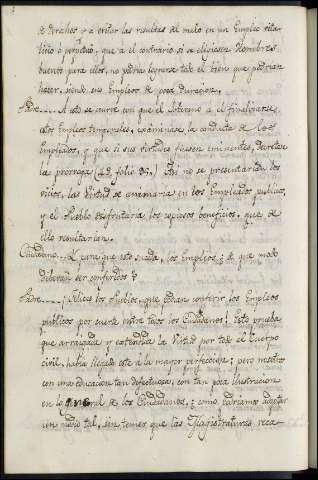 de derechos y a evitar las resultas del malo en un Empleo vita-
licio ó perpetuo, que á el contrario si se eligiesen Hombres
buenos para ellos, no podria lograrse todo el bien que podrian
hacer, siendo sus Empleos de poca duracion.
Padre.... A esto se ocurre con que el Soberano á el finalizarse
los Empleos temporales, examinase la conducta de los
Empleados, y que si sus virtudes fuesen eminentes, decretase
la prorroga. Asi no se presentarian los
vicios, la Virtud se animaria en los Empleados publicos,
y el Pueblo disfrutaria los copiosos beneficios, que de
ello resultarian.
Ciudadano.... Y para que esto suceda, los Empleos ¿de que modo
deberan ser conferidos?
Padre.... ¡Felices los Pueblos, que podian conferir los Empleos
publicos por suerte entre todos los Ciudadanos! Esto prueba
que arraigada y extendida la Virtud por todo el Cuerpo
civil, habia llegado este á la mayor perfeccion; pero nosotros
con una educacion tan defectuosa, con tan poca ilustracion
en lo general de los Ciudadanos, ¿como podriamos adoptar
un medio tal, sin temer que las Magistraturas reca-